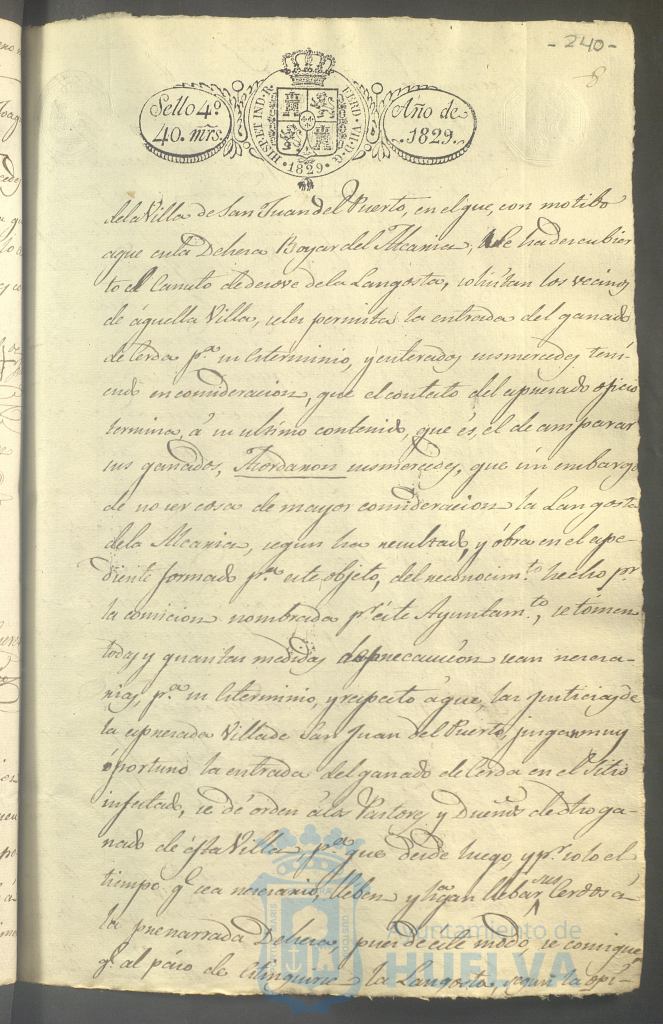 - 240 -
8
Sello 4º
40. mrs.
HISP. ET IND. R.
FERD. VII. D. G.
· 1829 ·
Año de
1829.
dela Villa de San Juan del Puerto, en el que, con motibo
aque enla Dehesa Boyar del Alcaria, se ha descubier
to el Canuto de desove dela Langosta, solicitan los vecinos
de áquella Villa, seles permita la entrada del ganado
de Cerda pª su esterminio, y enterados susmercedes teni
endo en consideracion, que el contesto del espresado oficio
termina, á su ultimo contenido, que és, el de amparar
sus ganados, Acordaron susmercedes, que sin embargo
de no ser cosa de mayor consideracion la Langosta
dela Alcaria, segun ha resultado, y óbra en el espe-
diente formado pª este objeto, del reconocimto. hecho pr.
la comicion nombrada pr éste Ayuntamto., se tómen
todas y quantas medidas de precaucion sean necesa-
rias, pª su esterminio, y respecto áque, las justicias de
la espresada Villa de San Juan del Puerto, juzgan muy
óportuno la entrada del ganado de Cerda en el Sitio
infestado, se dé órden álos Pastores y Dueños de dho ga
nado de ésta Villa, pª que desde luego, y pr. solo el
tiempo q. sea necesario, lleben y hagan llebar sus Cerdos á
la prenarrada Dehesa pues de este modo, se consigue
q. al paso de estinguirse la Langosta, segun la opi-
Ayuntamiento de
HUELVA